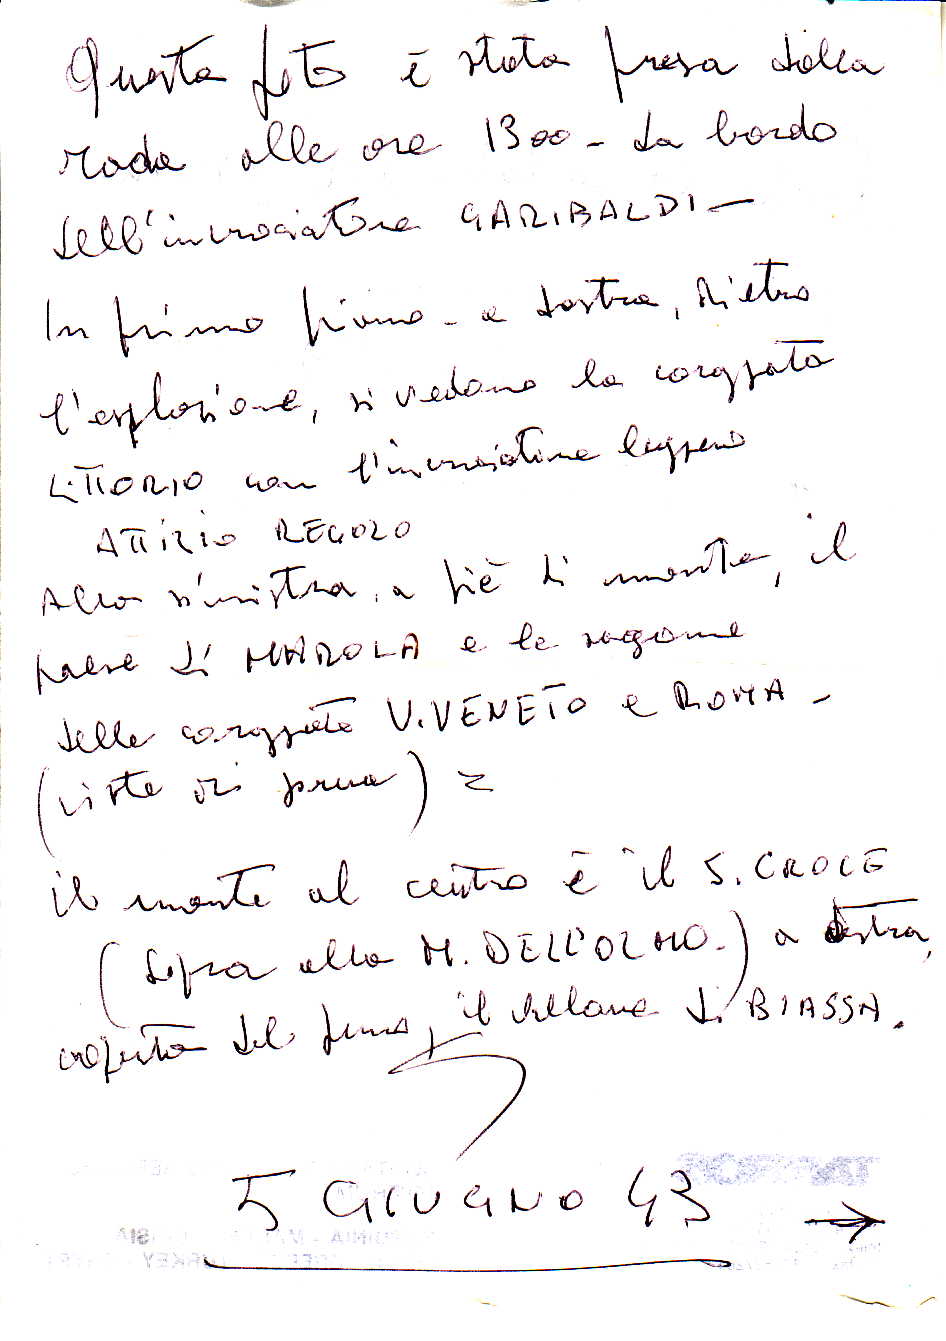 Questa foto è stata presa dalla
rada alle ore 1300 - da bordo
dell'incrociatore GARIBALDI -
In primo piano - a destra, dietro
l'esplosione, si vedono la corazzata
LITTORIO con l'incrociatore leggero
ATTILIO REGOLO
Alla sinistra, a piè di monte, il
paese di MAROLA e le sagome
delle corazzate V. VENETO e ROMA -
(viste di prua) =
il monte al centro è il S. CROCE
(sopra alla M. DELL'OLMO -) a destra,
coperta del fumo, il vallone di BIASSA.
5 GIUGNO 43 →